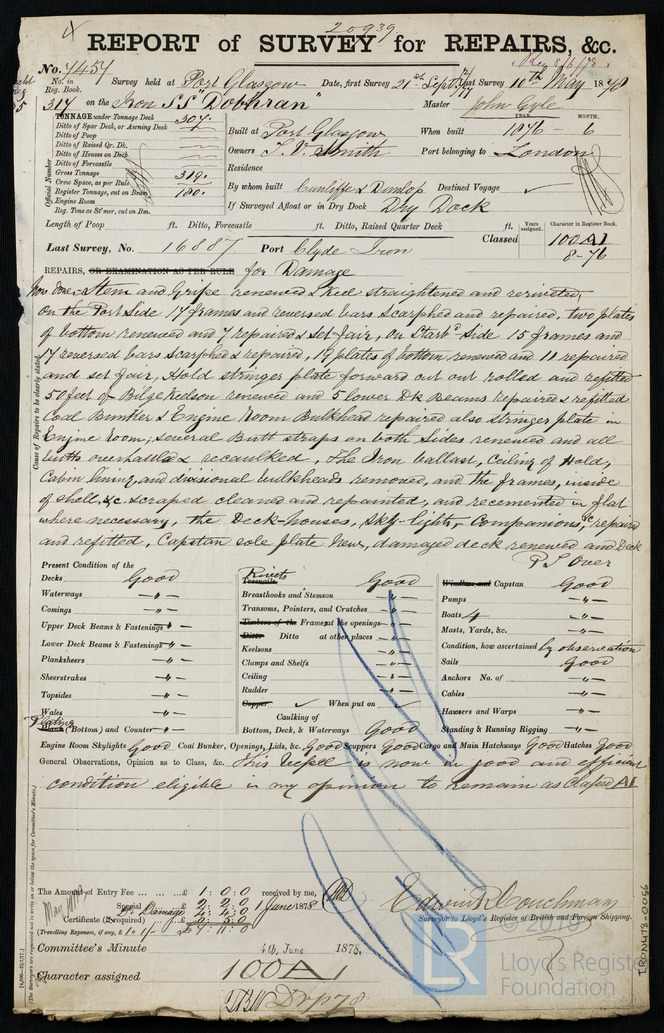 20939
REPORT of SURVEY for REPAIRS, &c.
No. 7457
No. in Reg. Book. Survey held at Port Glasgow Date, first Survey 21st Sept 77 Last Survey 10th May 1878
317 on the Iron SS "Dobhran" Master John Gyle
TONNAGE under Tonnage Deck 307.
Ditto of Spar Deck, or Awning Deck
Ditto of Poop
Ditto of Raised Qr. Dk.
Ditto of Houses on Deck
Ditto of Forecastle
Gross Tonnage 319.
Crew Space, as per Rule
Register Tonnage, cut on Beam 180.
Engine Room
Reg. Tons as St'mer, cut on Bm.
Official Number
YEAR. MONTH.
Built at Port Glasgow When built 1876 - 6
Owners T. V. Smith Port belonging to London
Residence
By whom built Cunliffe & Dunlop Destined Voyage ✓
If Surveyed Afloat or in Dry Dock Dry Dock
Length of Poop ft. Ditto, Forecastle ft. Ditto, Raised Quarter Deck ft.
Years assigned. Character in Register Book.
Last Survey, No. 16887 Port Clyde Iron Classed 100A1
8-76
REPAIRS, OR EXAMINATION AS PER RULE for Damage
Now Done:- Stem and Gripe renewed & Keel straightened and reriveted,
On the Port Side 17 frames and reversed bars Scarphed and repaired, two plates
of bottom renewed and 7 repaired & set fair, on Starbd Side 15 frames and
17 reversed bars Scarphed & repaired, 19 plates of bottom renewed and 11 repaired
and set fair, Hold stringer plate forward cut out rolled and refitted
50 feet of Bilge Keelson renewed and 5 lower Dk Beams repaired & refitted
Coal Bunker & Engine Room Bulkhead repaired also stringer plate in
Engine Room; several Butt straps on both sides renewed and all
butts overhauled & recaulked, The Iron ballast, Ceiling of Hold,
Cabin lining, and divisional bulkheads removed, and the frames, inside
of shell, &c scraped cleaned and repainted, and recemented in flat
where necessary, the Deck-houses, Sky-lights, Companions, &c repaired
and refitted, Capstan sole plate New, damaged deck renewed and Deck
P.T Over
Cause of Repairs to be clearly stated
Present Condition of the
Decks Good
Waterways -"-
Comings -"-
Upper Deck Beams & Fastenings -"-
Lower Deck Beams & Fastenings -"-
Planksheers -"-
Sheerstrakes -"-
Topsides -"-
Wales -"-
Plating (Bottom) and Counter -"-
Rivets Good
Breasthooks and Stemson -"-
Transoms, Pointers, and Crutches -"-
Timbers of the Frames at the openings -"-
Ditto Ditto at other places -"-
Keelsons -"-
Clamps and Shelfs -"-
Ceiling -"-
Rudder -"-
Copper ✓ When put on ✓
Caulking of
Bottom, Deck, & Waterways Good
Windlass and Capstan Good
Pumps -"-
Boats 4 -"-
Masts, Yards, &c. -"-
Condition, how ascertained by observation
Sails Good
Anchors No. of -"-
Cables -"-
Hawsers and Warps -"-
Standing & Running Rigging -"-
Engine Room Skylights Good Coal Bunker, Openings, Lids, &c. Good Scuppers Good Cargo and Main Hatchways Good Hatches Good
General Observations, Opinion as to Class, &c. This Vessel is now in good and efficient
condition eligible in my opinion to remain as Classed A1
The Amount of Entry Fee £ 1:0:0 received by me,
Special Damage £ 4:4:0 1 June 1878
Certificate (if required) £ 0:5:0
(Travelling Expenses, if any, £ 1:1/-)
Edwin R Couchman
Surveyor to Lloyd's Register of British and Foreign Shipping.
Committee's Minute 4th June 1878.
Character assigned 100A1
© 2019
LR Lloyd's Register
Foundation
IRON478-0056